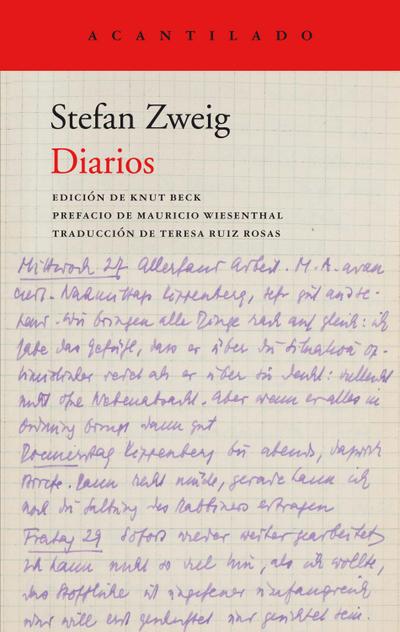 ACANTILADO
Stefan Zweig
Diarios
EDICIÓN DE KNUT BECK
PREFACIO DE MAURICIO WIESENTHAL
TRADUCCIÓN DE TERESA RUIZ ROSAS
Mittwoch 27 Allerhand Arbeit. M. A. avan
ciert. Nachmittags Kippenberg, sehr gut
Wir bringen alle Dinge rasch auf gleich: ich
habe das Gefühl, dass er über die Situation op-
timistischer redet als er über sie denkt: vielleicht
nicht ohne Nebenabsicht. Aber wenn er alles in
Ordnung bringt dann gut
Donnerstag Kippenberg bis abends, dazwischen
Dann recht müde, gerade kann ich
noch die des Rabbiners ertragen
Freitag 29 Sofort wieder weiter gearbeitet
Ich kann nicht so viel tun, als ich wollte,
das Stoffliche ist ungeheuer umfangreich
und will erst und gesichtet sein.